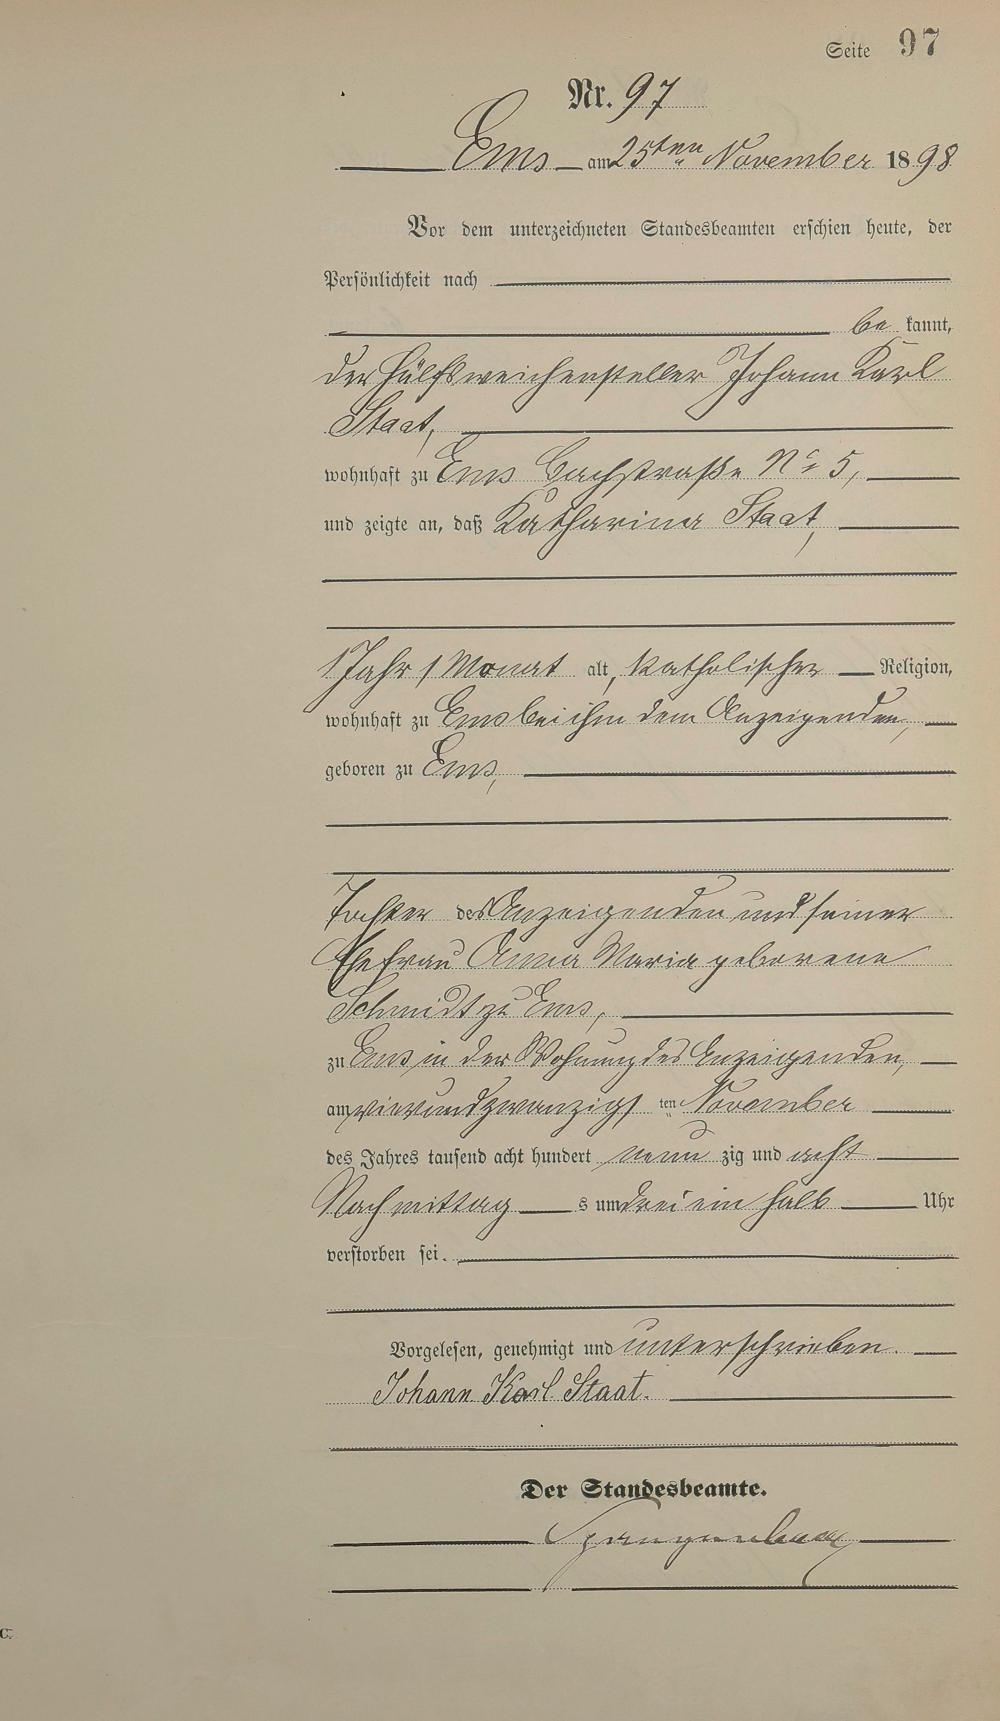 Seite 97
Nr. 97
Ems am 25ten November 1898
Vor dem unterzeichneten Standesbeamten erschien heute, der
Persönlichkeit nach
be kannt,
der Hülfsweichensteller Johann Karl
Staat,
wohnhaft zu Ems Bachstraße No 5,
und zeigte an, daß Katharina Staat,
1 Jahr 1 Monat alt, katholischer Religion,
wohnhaft zu Ems bei ihm dem Anzeigenden,
geboren zu Ems,
Tochter des Anzeigenden und seiner
Ehefrau Anna Maria geborene
Schmidt zu Ems,
zu Ems in der Wohnung des Anzeigenden,
am vierundzwanzigs ten November
des Jahres tausend acht hundert neun zig und acht
Nachmittag s um drei ein halb Uhr
verstorben sei.
Vorgelesen, genehmigt und unterschrieben.
Johann Karl Staat.
Der Standesbeamte.